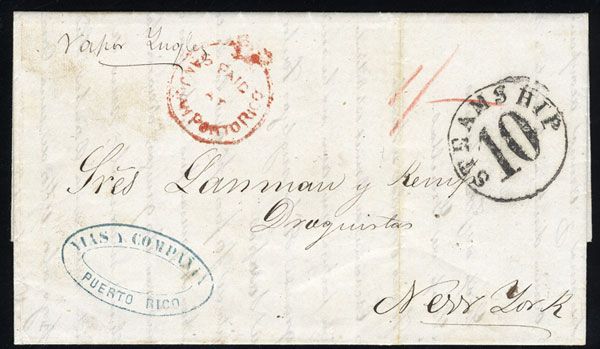 Vapor Ingles
PAID
SAN JUAN PORTO RICO
1/
STEAMSHIP
10
Sres Lanman y Kemp
Droguistas
New York
MAS Y COMPAÑIA
PUERTO RICO